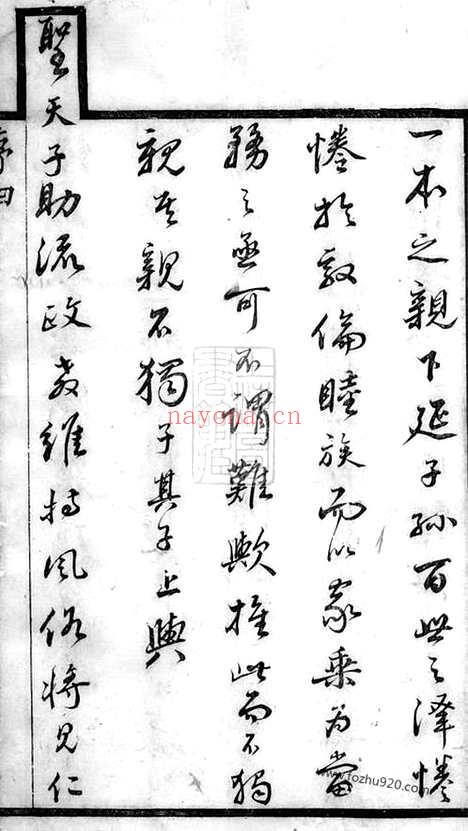 一本之親下延子孫百世之澤惓
惓於敦倫睦族而以家乘為當
務之亟可不謂難歟推此而不獨
親其親不獨子其子上與
聖天子助流政教維持風俗將見仁
序四
nayona.cn
www.fozhu920.com